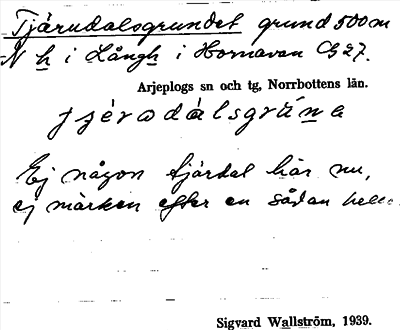 Tjärudalsgrundet grund 500 m
N h i Långh i Hornavan C 27.
Arjeplogs sn och tg, Norrbottens län.
Ej någon tjärdal här nu,
ej märken efter en sådan heller.
Sigvard Wallström, 1939.